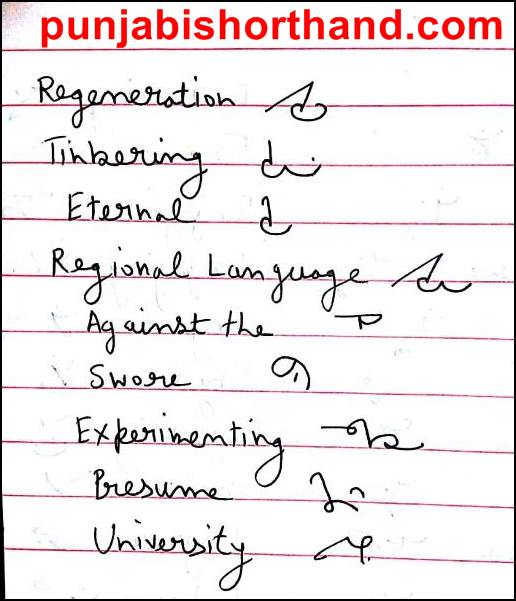 punjabishorthand.com
Regeneration
Tinkering
Eternal
Regional Language
Against the
Swore
Experimenting
Presume
University